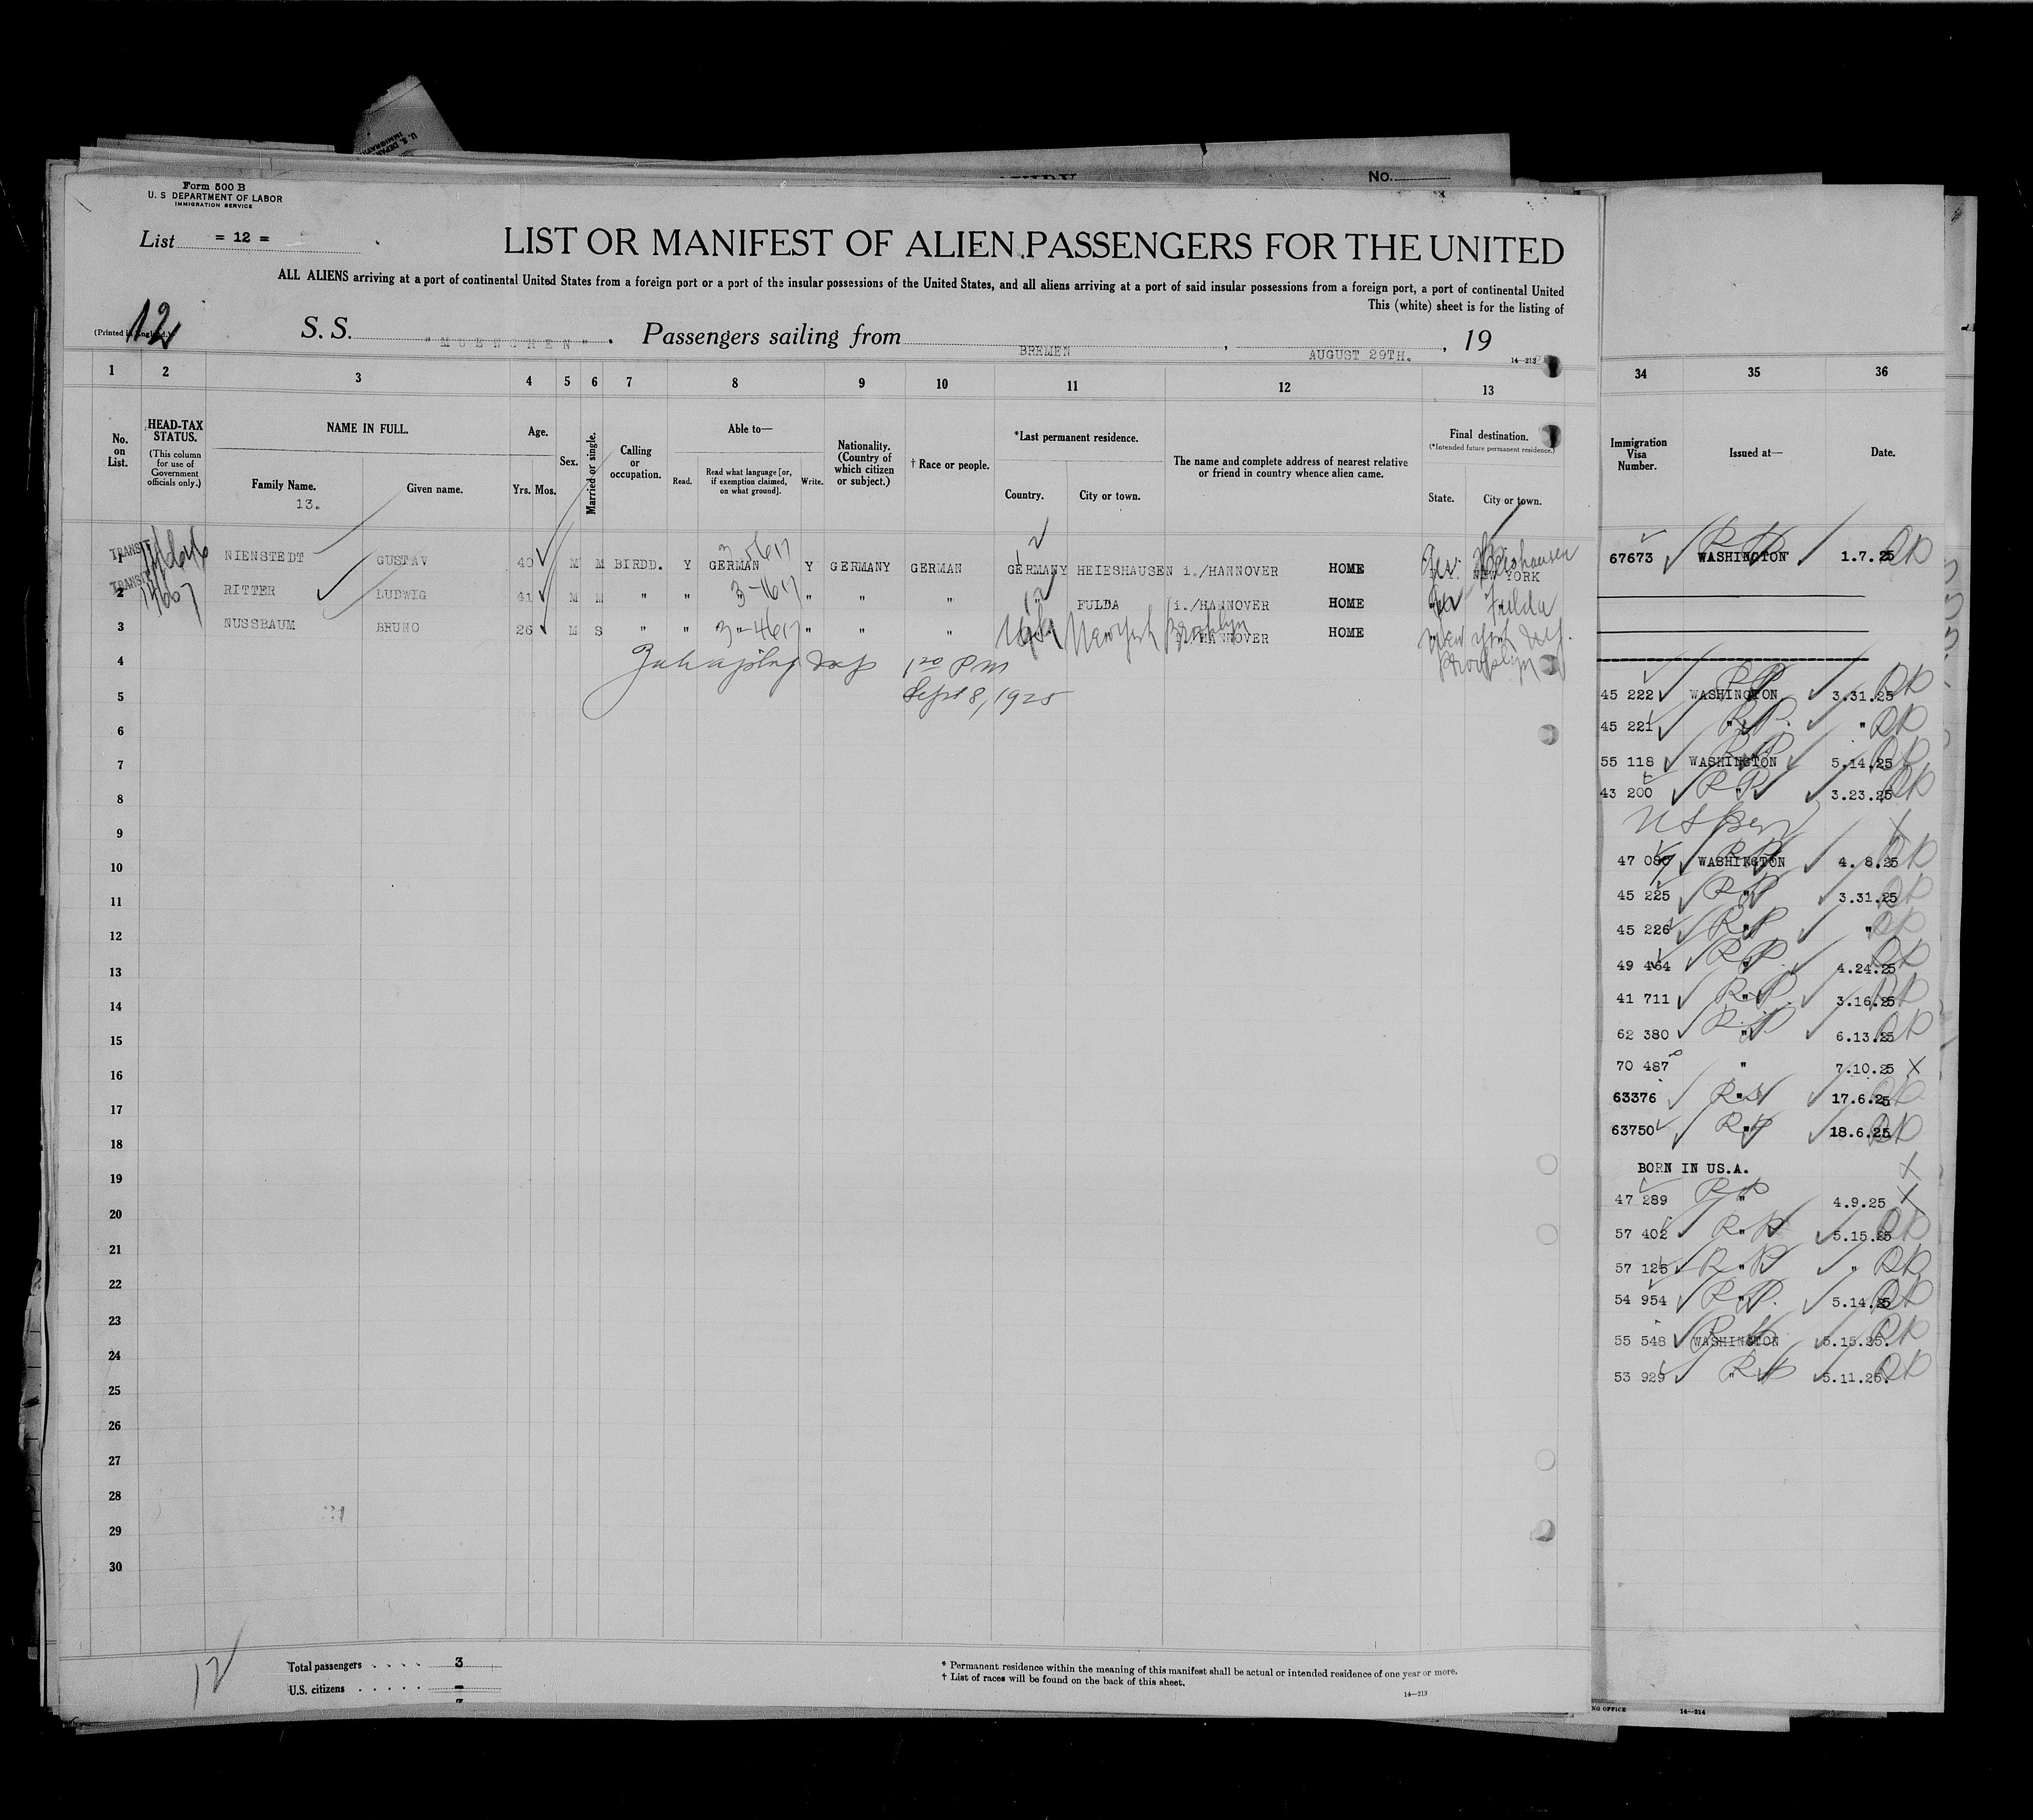 U. S. DEPAR
IMMIGRATI
No.
Form 500 B
U. S DEPARTMENT OF LABOR
IMMIGRATION SERVICE
List = 12 =
LIST OR MANIFEST OF ALIEN PASSENGERS FOR THE UNITED
ALL ALIENS arriving at a port of continental United States from a foreign port or a port of the insular possessions of the United States, and all aliens arriving at a port of said insular possessions from a foreign port, a port of continental United
This (white) sheet is for the listing of
(Printed in England.)
12
S. S. "MUENCHEN". Passengers sailing from BREMEN, AUGUST 29TH., 19
14—213
1 2 3 4 5 6 7 8 9 10 11 12 13 34 35 36
No. on List.
HEAD-TAX STATUS.
(This column for use of Government officials only.)
NAME IN FULL.
Family Name.
13.
Given name.
Age.
Yrs. Mos.
Sex.
Married or single.
Calling or occupation.
Able to—
Read.
Read what language [or, if exemption claimed, on what ground].
Write.
Nationality. (Country of which citizen or subject.)
† Race or people.
*Last permanent residence.
Country. City or town.
The name and complete address of nearest relative or friend in country whence alien came.
Final destination.
(*Intended future permanent residence.)
State. City or town.
Immigration Visa Number.
Issued at—
Date.
1 TRANSIT NIENSTEDT GUSTAV 40 M M BIRDD. Y GERMAN Y GERMANY GERMAN GERMANY HEIESHAUSEN i./HANNOVER HOME NEW YORK
2 TRANSIT RITTER LUDWIG 41 M M " " " " " " FULDA i./HANNOVER HOME Fulda
3 NUSSBAUM BRUNO 26 M S " " " " " New York Brooklyn i./HANNOVER HOME New York Brooklyn
4 1 20 PM
5 Sept 8, 1925
6
7
8
9
10
11
12
13
14
15
16
17
18
19
20
21
22
23
24
25
26
27
28
29
30
67673 WASHINGTON 1.7.25
45 222 WASHINGTON 3.31.25
45 221 " "
55 118 WASHINGTON 5.14.25
43 200 " 3.23.25
47 080 WASHINGTON 4. 8.25
45 225 " 3.31.25
45 226 " "
49 464 " 4.24.25
41 711 " 3.16.25
62 380 " 6.13.25
70 487 " 7.10.25
63376 " 17.6.25
63750 " 18.6.25
BORN IN US.A.
47 289 " 4.9.25
57 402 " 5.15.25
57 125 " "
54 954 " 5.14.25
55 548 WASHINGTON 5.15.25.
53 929 " 5.11.25.
12
Total passengers . . . . 3
U.S. citizens . . . . . -
* Permanent residence within the meaning of this manifest shall be actual or intended residence of one year or more.
† List of races will be found on the back of this sheet.
14—213
NG OFFICE 14—214